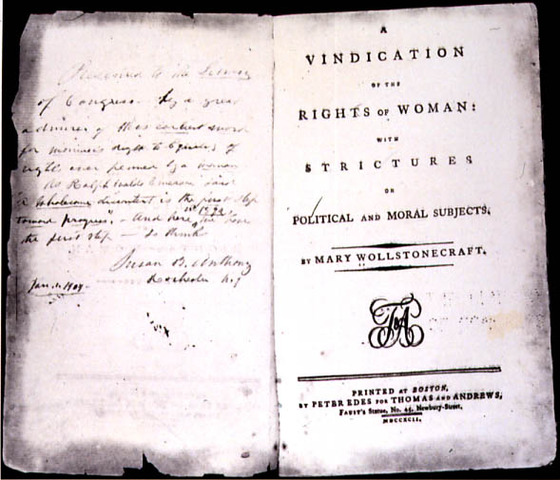 Presented to the Library
of Congress by a great
admirer of this earliest work
for woman's right to Equality of
rights ever penned by a woman
As Ralph Waldo Emerson said
"A wholesome discontent is the first step
toward progress." - And here in 1792 we have
the first step - so thinks
Susan B. Anthony
Rochester N.Y.
Jan. 1. 1904.
A
VINDICATION
OF THE
RIGHTS OF WOMAN:
WITH
STRICTURES
ON
POLITICAL AND MORAL SUBJECTS.
BY MARY WOLLSTONECRAFT.
T&A
PRINTED AT BOSTON,
BY PETER EDES FOR THOMAS AND ANDREWS,
FAUST'S Statue, No. 45, Newbury-Street,
MDCCXCII.